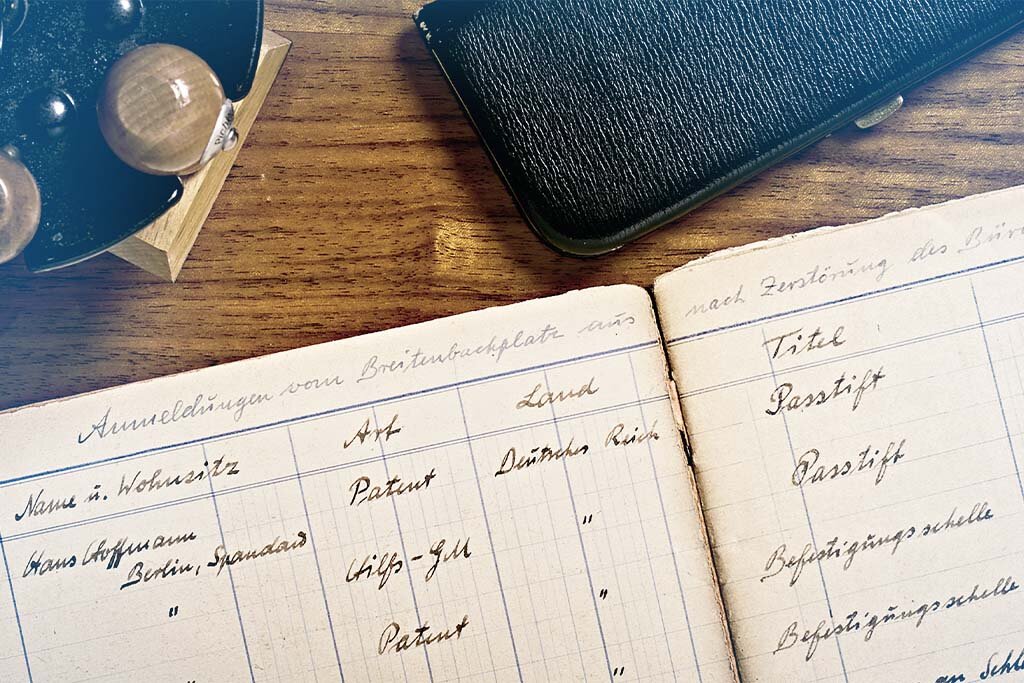 Anmeldungen vom Breitenbachplatz aus nach Zerstörung des
Name u. Wohnsitz Art Land Titel
Hans Hoffmann Patent Deutsches Reich Passtift
Berlin, Spandau
" Hilfs-GM " Passtift
" Patent " Befestigungsschelle
" Befestigungsschelle
an